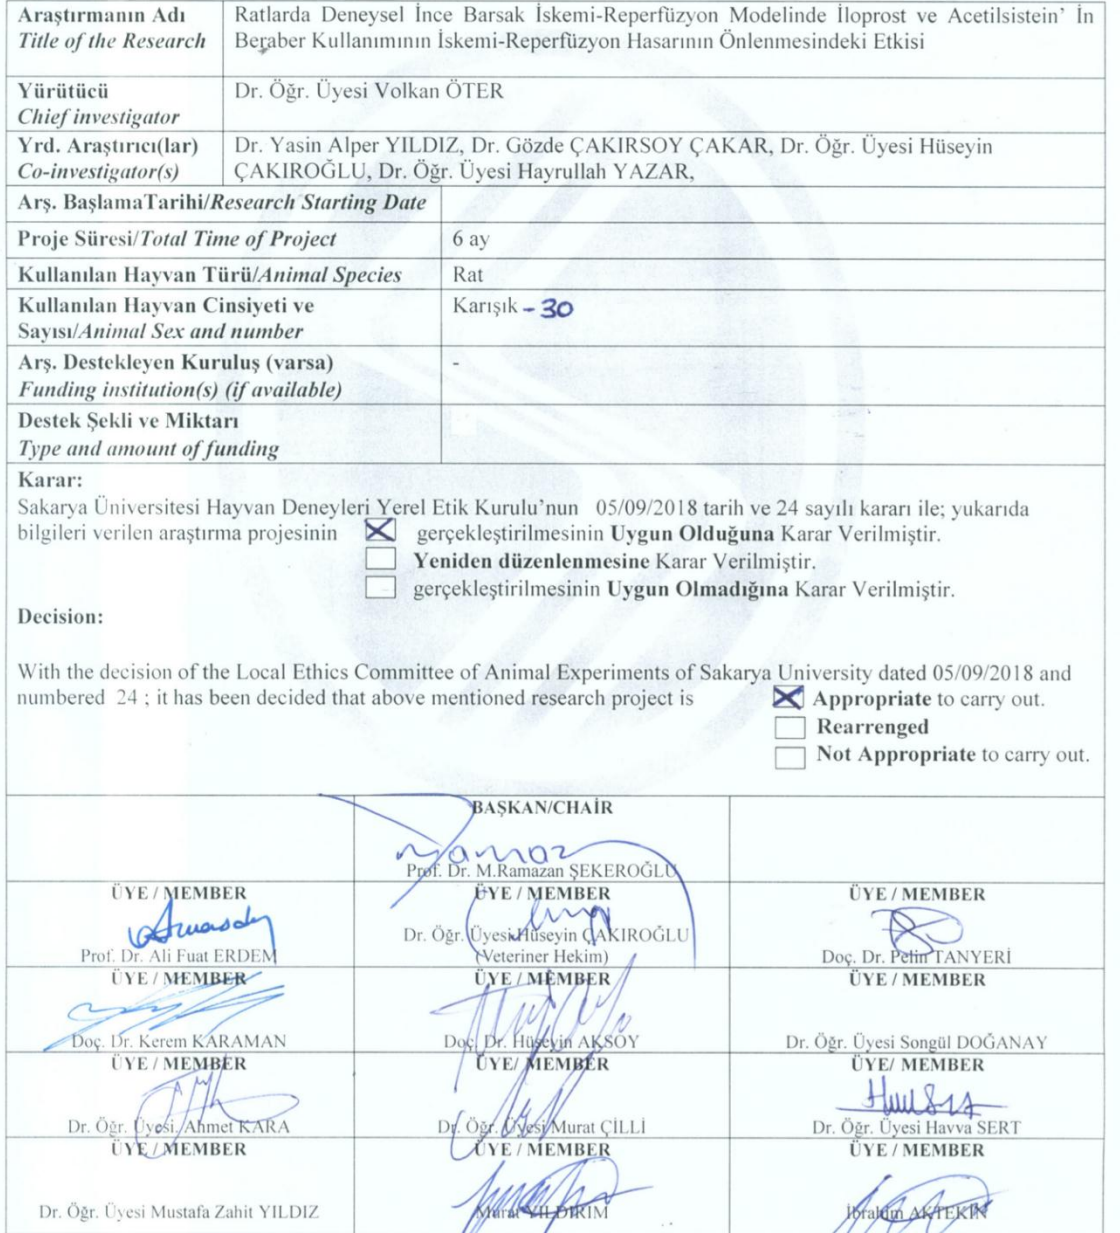 Araştırmanın Adı
Title of the Research
Ratlarda Deneysel İnce Barsak İskemi-Reperfüzyon Modelinde İloprost ve Acetilsistein' İn
Beraber Kullanımının İskemi-Reperfüzyon Hasarının Önlenmesindeki Etkisi
Yürütücü
Chief investigator
Dr. Öğr. Üyesi Volkan ÖTER
Yrd. Araştırıcı(lar)
Co-investigator(s)
Dr. Yasin Alper YILDIZ, Dr. Gözde ÇAKIRSOY ÇAKAR, Dr. Öğr. Üyesi Hüseyin
ÇAKIROĞLU, Dr. Öğr. Üyesi Hayrullah YAZAR,
Arş. BaşlamaTarihi/Research Starting Date
Proje Süresi/Total Time of Project
6 ay
Kullanılan Hayvan Türü/Animal Species
Rat
Kullanılan Hayvan Cinsiyeti ve
Sayısı/Animal Sex and number
Karışık - 30
Arş. Destekleyen Kuruluş (varsa)
Funding institution(s) (if available)
-
Destek Şekli ve Miktarı
Type and amount of funding
Karar:
Sakarya Üniversitesi Hayvan Deneyleri Yerel Etik Kurulu'nun 05/09/2018 tarih ve 24 sayılı kararı ile; yukarıda
bilgileri verilen araştırma projesinin gerçekleştirilmesinin Uygun Olduğuna Karar Verilmiştir.
Yeniden düzenlenmesine Karar Verilmiştir.
gerçekleştirilmesinin Uygun Olmadığına Karar Verilmiştir.
Decision:
With the decision of the Local Ethics Committee of Animal Experiments of Sakarya University dated 05/09/2018 and
numbered 24 ; it has been decided that above mentioned research project is Appropriate to carry out.
Rearrenged
Not Appropriate to carry out.
BAŞKAN/CHAİR
Prof. Dr. M.Ramazan ŞEKEROĞLU
ÜYE / MEMBER
Prof. Dr. Ali Fuat ERDEM
ÜYE / MEMBER
Dr. Öğr. Üyesi Hüseyin ÇAKIROĞLU
(Veteriner Hekim)
ÜYE / MEMBER
Doç. Dr. Pelin TANYERİ
ÜYE / MEMBER
Doç. Dr. Kerem KARAMAN
ÜYE / MEMBER
Doç. Dr. Hüseyin AKSOY
ÜYE / MEMBER
Dr. Öğr. Üyesi Songül DOĞANAY
ÜYE / MEMBER
Dr. Öğr. Üyesi. Ahmet KARA
ÜYE/ MEMBER
Dr. Öğr. Üyesi Murat ÇİLLİ
ÜYE/ MEMBER
Dr. Öğr. Üyesi Havva SERT
ÜYE / MEMBER
Dr. Öğr. Üyesi Mustafa Zahit YILDIZ
ÜYE / MEMBER
Murat YILDIRIM
ÜYE / MEMBER
İbrahim AKTEKİN